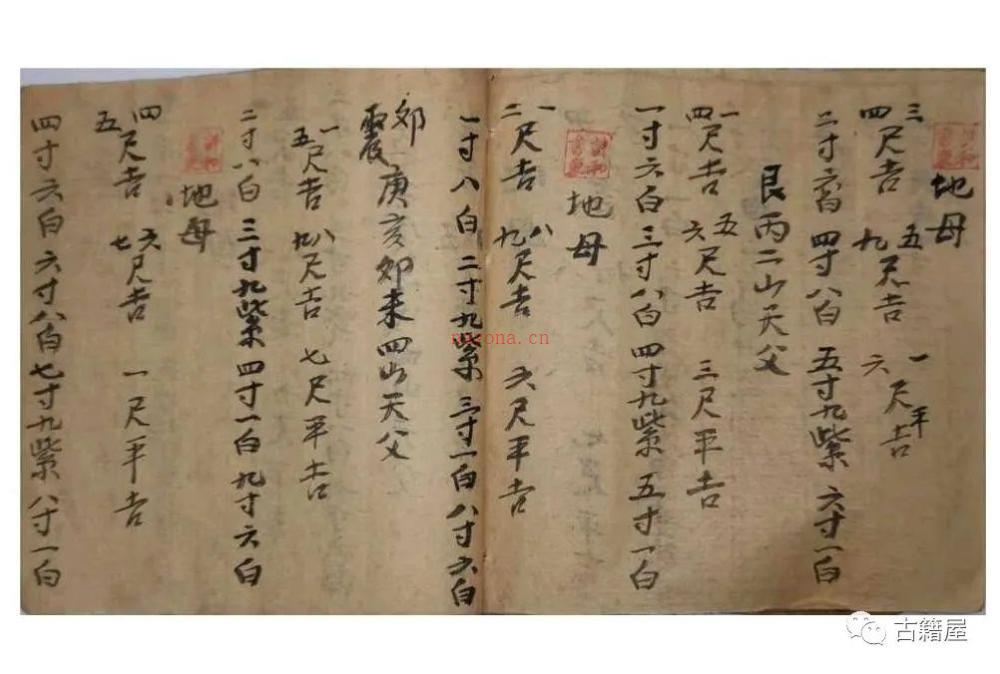 地母
三四尺吉 五九尺吉 一六尺平吉
二寸六白 四寸八白 五寸九紫 六寸一白
艮丙二山天父
一四尺吉 五六尺吉 三尺平吉
一寸六白 三寸八白 四寸九紫 五寸一白
地母
一二尺吉 八九尺吉 六尺平吉
一寸八白 二寸九紫 三寸一白 八寸六白
郊震庚亥郊未四山天父
一五尺吉 八九尺吉 七尺平吉
二寸八白 三寸九紫 四寸一白 九寸六白
地母
四五尺吉 六七尺吉 一尺平吉
四寸六白 六寸八白 七寸九紫 八寸一白
古籍屋